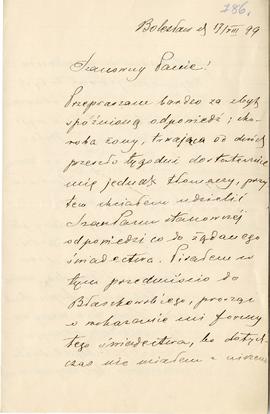 286.
Bolesław d 17/VIII 99
Szanowny Panie!
Przepraszam bardzo za zbyt
spóźnioną odpowiedź; cho-
roba żony, trwająca od dwóch
przeszło tygodni dostatecznie
mię jednak tłomaczy, przy
tem chciałem udzielić
Szan Panu stanowczej
odpowiedzi co do żądanego
świadectwa. Pisałem w
tym przedmiocie do
Błaszkowskiego, prosząc
o wskazanie mi formy
tego świadectwa, bo dotych-
czas nie miałem z